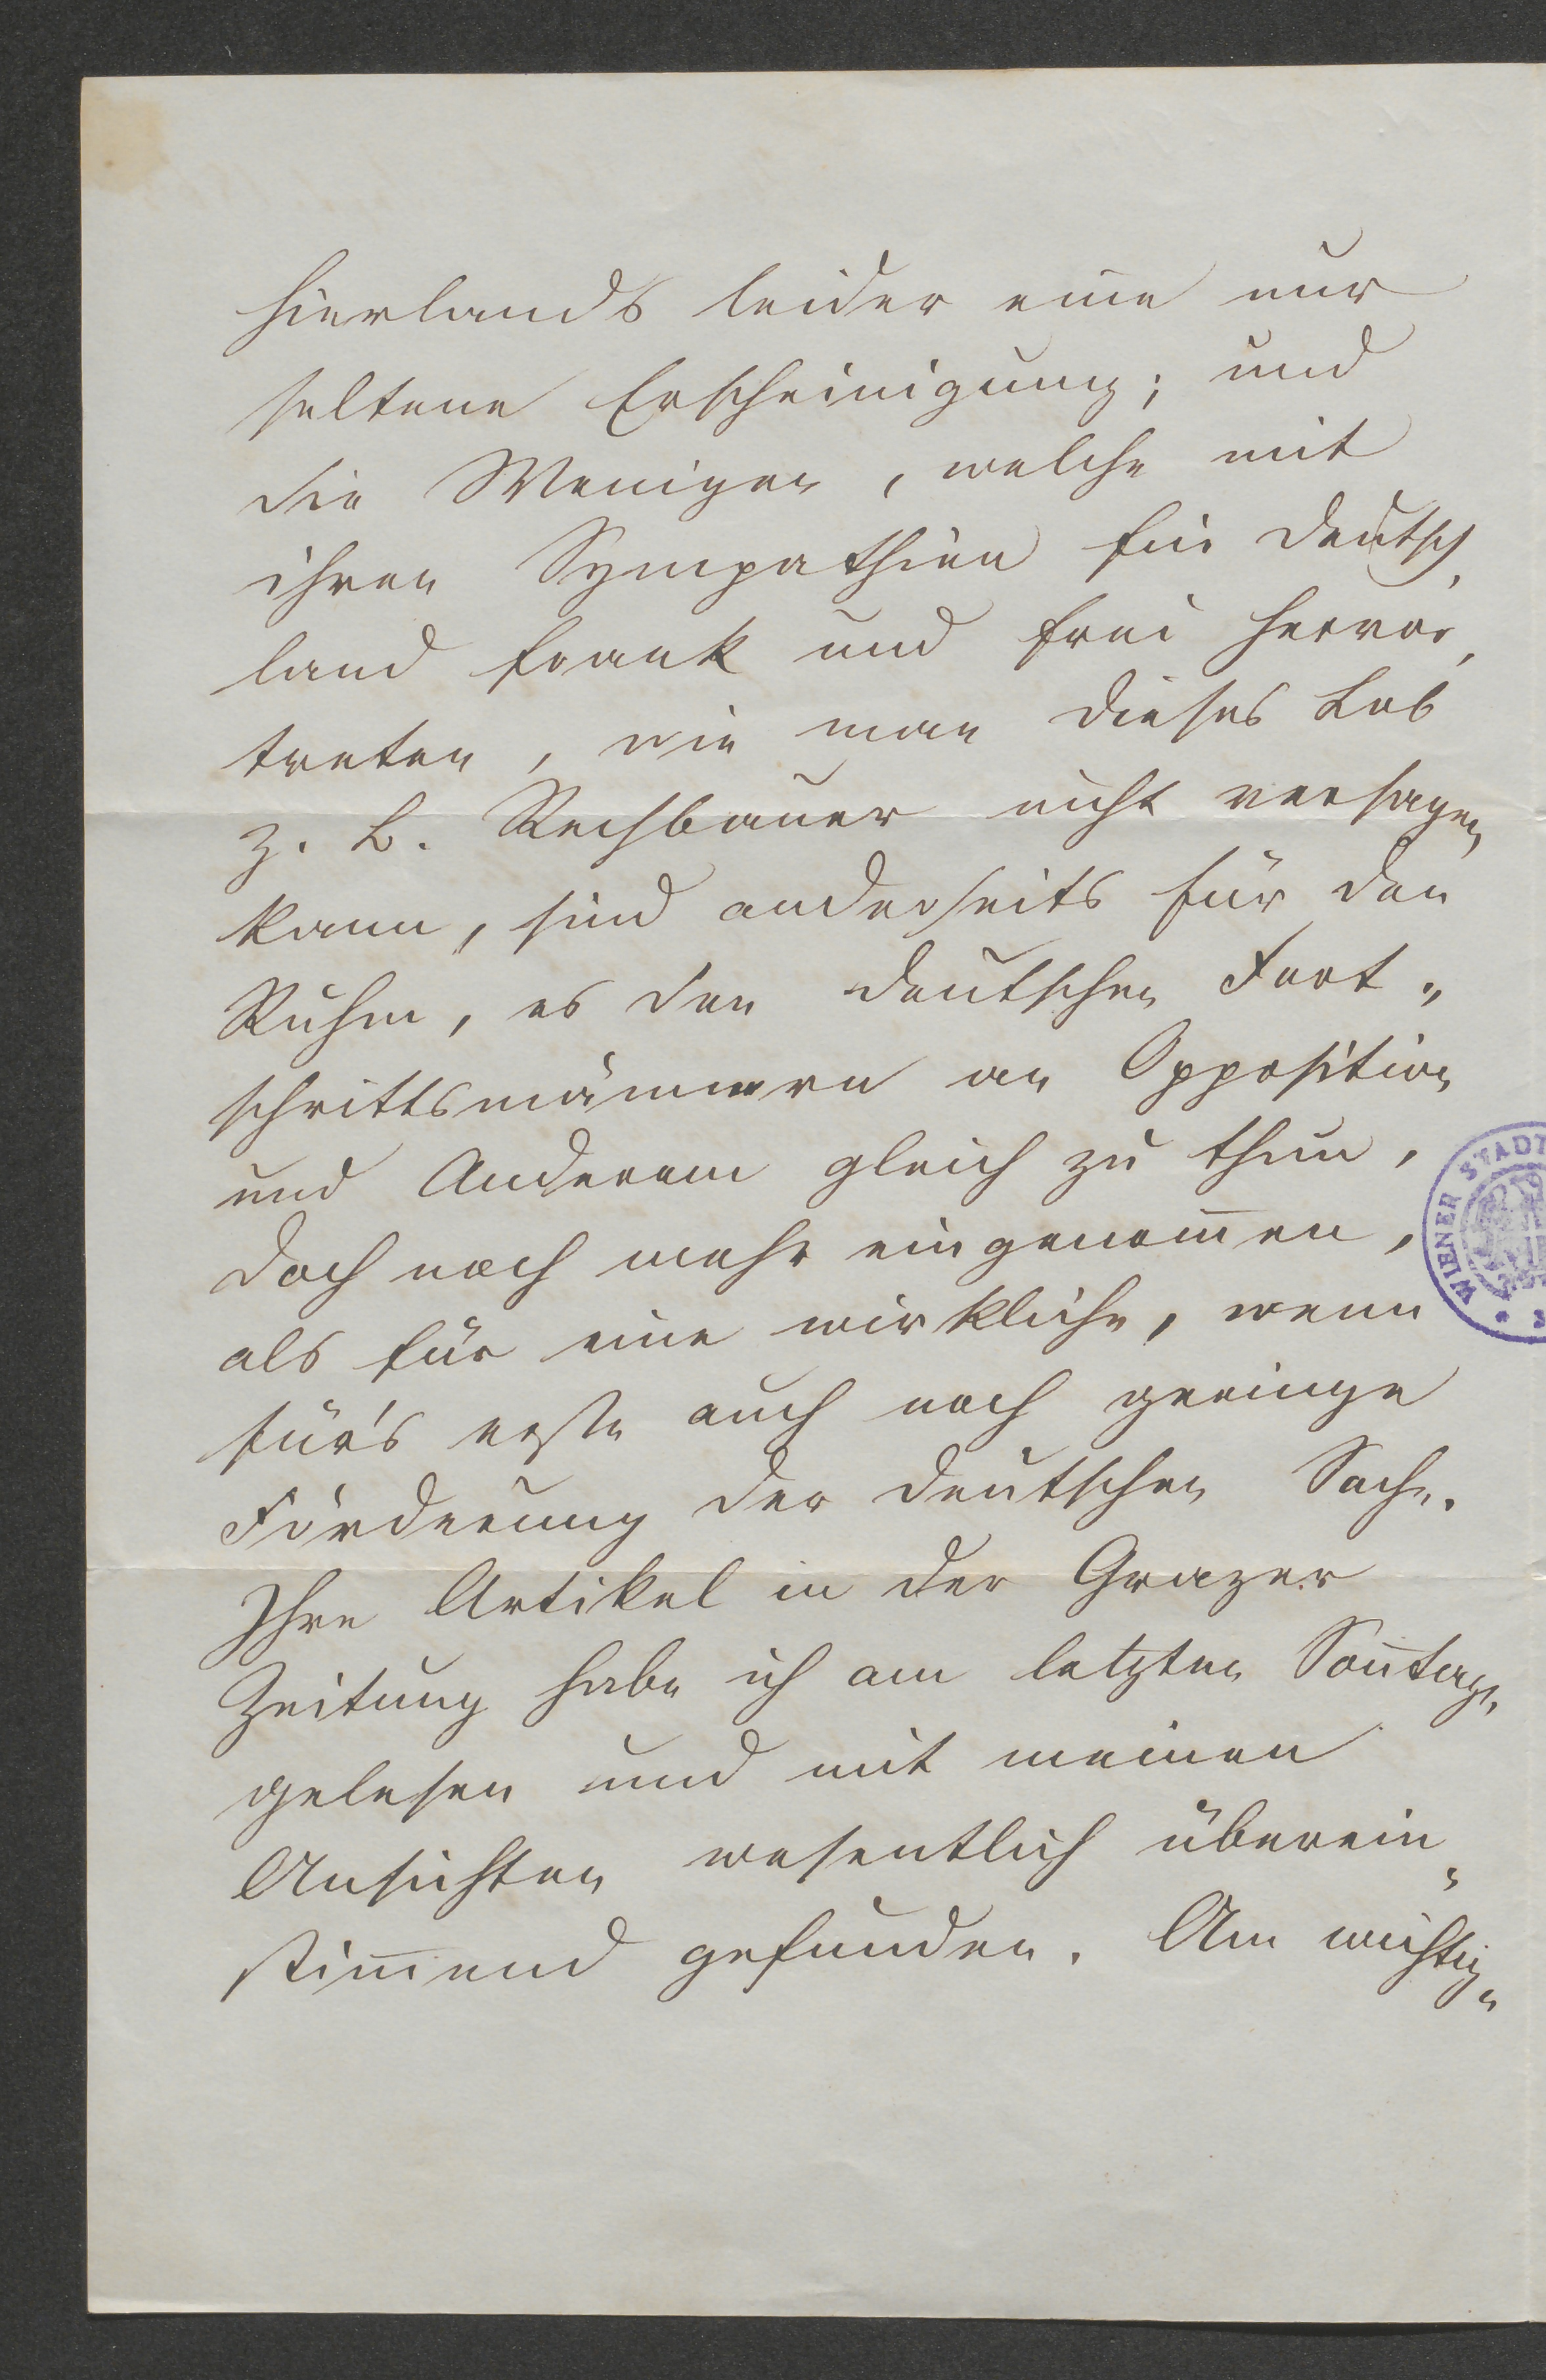 hierlands leider eine nur
seltene Erscheinigung; und
die Wenigen, welche mit
ihren Sympathien für Deutsch„
land frank und frei hervor„
treten, wie man dieses Lob
z. B. Rechbauer nicht versagen
kann, sind anderseits für den
Ruhm, es den deutschen Fort„
schrittsmännern an Opposition
und Anderem gleich zu thun,
doch noch mehr eingenom̅en,
als für eine wirkliche, wenn
für's erste auch noch geringe
Förderung der deutschen Sache.
Ihre Artikel in der Grazer
Zeitung habe ich am letzten Son̅tage
gelesen und mit meinen
Ansichten wesentlich überein„
stim̅end gefunden. Am wichtig„
WIENER STADT